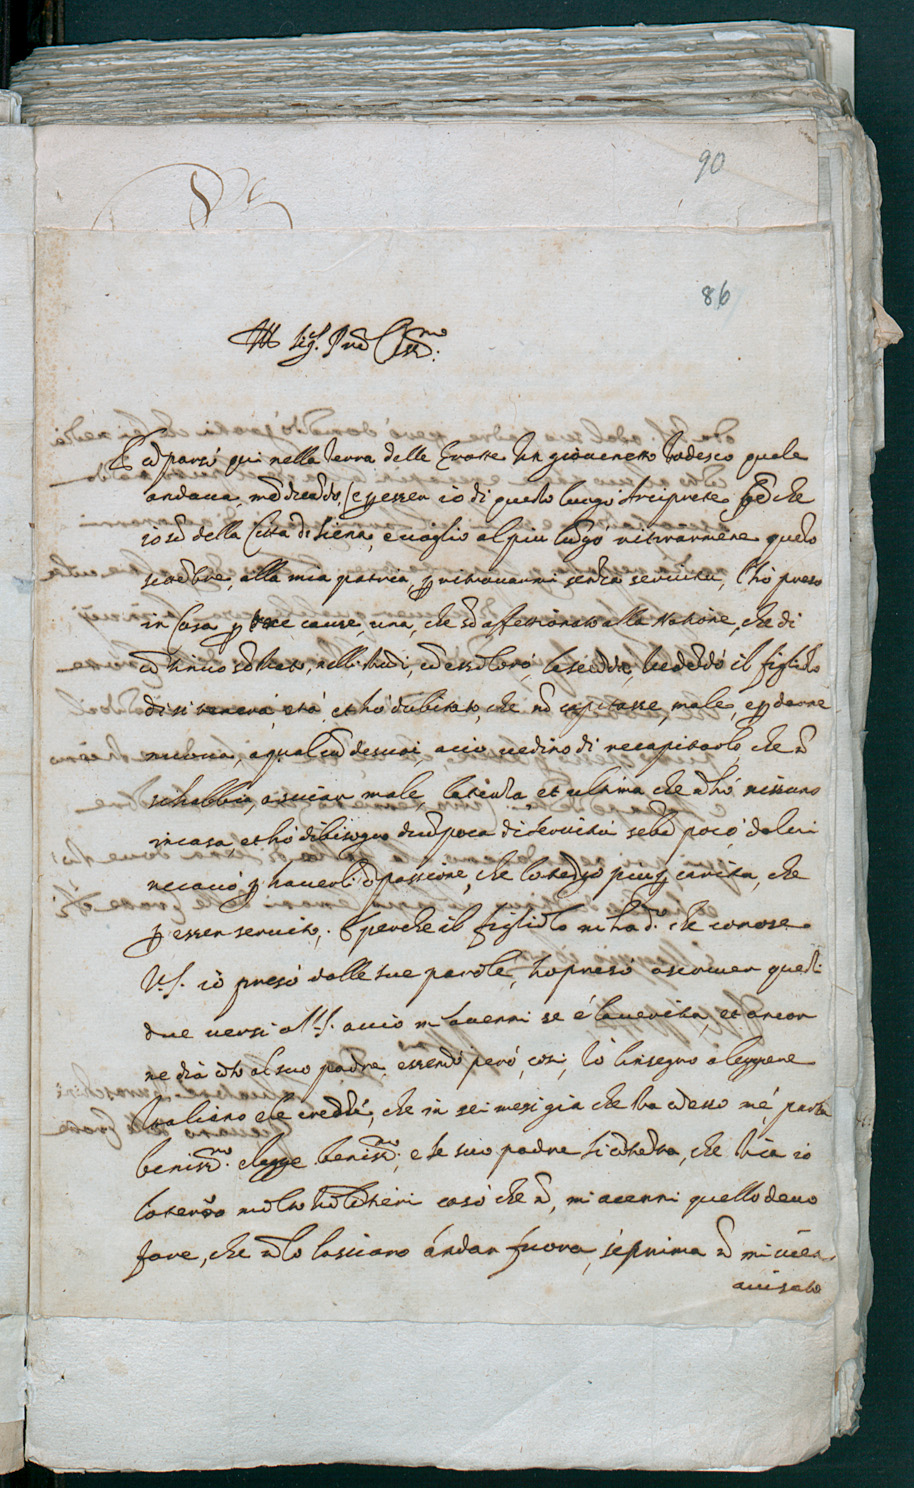 90
86
Ill Sig.r P.rone
È cõparso qui nella terra delle Grotte un giovenetto todesco quale
andava, mẽdicando, essere io di questo luogo Arciprete che
io sõ della Città di Siena, e voglio al piu lũgo ritirarmene questo
alla mia patria, p ritrovarmi senza servitu, l'hò preso
in Casa p tre cause, una, che sõ affettionato alla Natione, che di
cõtinuo sõ stato, nelli studi, cõ essi loro, la secõda, vedẽdo il figliolo
di sì tenera età, et hò dubitato, che nõ capitasse, male, e p darne
nuova, a qual cũ de suoi acciò vedino di recapitarlo, che nõ
s'habbia, a sviar male, la terza, et ultima che nõ hò nissuno
in casa et hò dibisogno d'un poca di servitù sebẽ poco da lui
ricavo p haverli cõpassione, che lo tẽgo piu p carità, che
p esser servito, E perche il figliolo mi ha d. che conosce
V.S. iò preso dalle sue parole, ho preso a scriver questi
due versi a V.S. acciò m'avervi se è la verità, et ancor
ne dia cõto al suo padre, essendo però, così, io l'insegno a leggere
Italiano e le creãze, che in sei mesi già che sta cõ esso mé, parla
beniss.mo e legge beniss.mo, e se suo padre si cõtẽta, che stia io
lo terrò molto volẽtieri casò che nõ, mi accenni quello devo
fare, che nõ lo lasciarò ándar fuora, se prima nõ mi viẽn
avisato